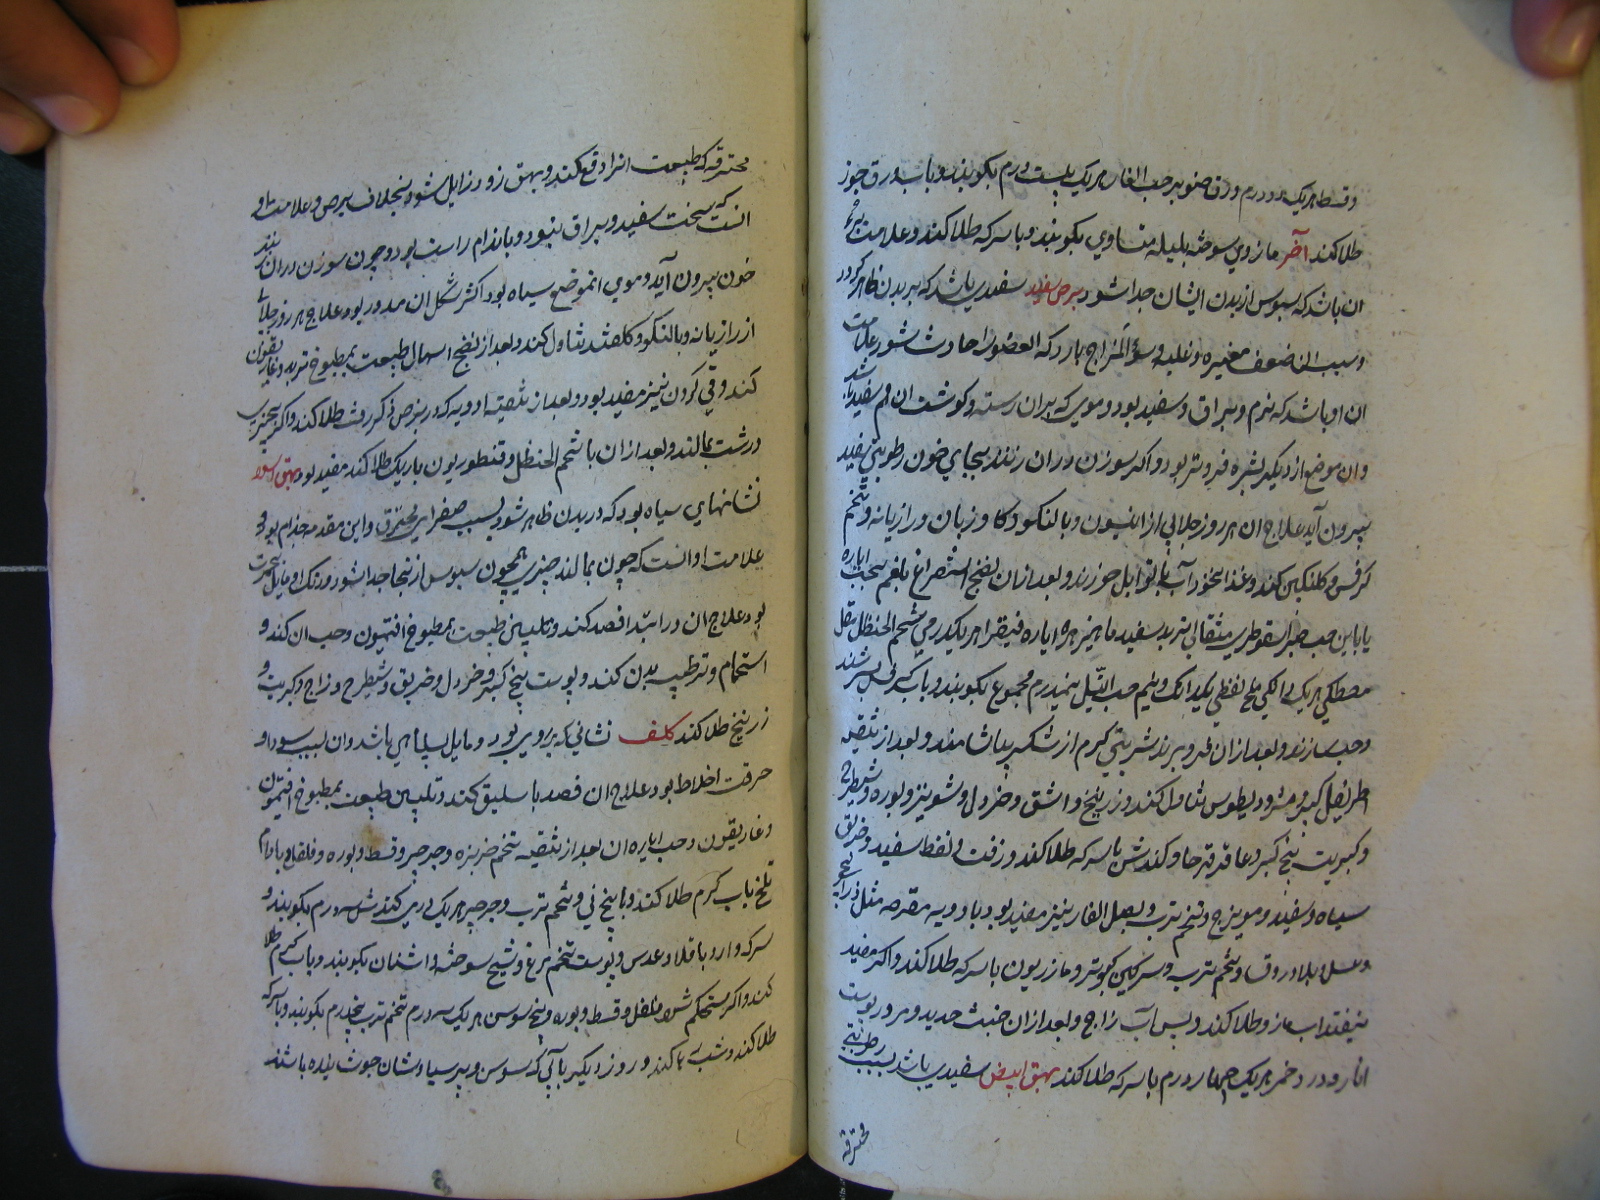 وقسط هریک دو درم ورق صنوبر حب الغار هریک بیست درم بکوبند و بآب ورق جوز
طلا کنند آخر مازوی سوخته بلیله متساوی بکوبند و با سرکه طلا کنند و علامت برء
ان باشد که سبوس از بدن ایشان جدا شود برص سفید سفیدی باشد که بر بدن ظاهر گردد
و سبب ان ضعف مغیره و غلبه و سوء المزاج بارد که العضو را حادث شود علامت
ان او باشد که نرم و براق و سفید بود و موی که بران رسته و کوشت ان هم سفید باشد
وان موضع از دیکر بشره فروتر بود و اکر سوزن دران زنند بجای خون رطوبتی سفید
بیرون آید علاج ان هر روز جلابی از انیسون و بالنکو و کاو زبان و رازیانه و تخم
کرفس و کلنکبین کنند و غذا نخود آب با توابل خورند و بعد ازان نضج استفراغ بلغم بحب ایاره
یا باین حب صبر سقوطری مثقالی تربد سفید ایاره فیقرا هریک درمی شحم الحنظل مقل
مصطکی هریک دانکی ملح نفطی یکدانک و نیم حب النیل نیمدرم مجموع بکوبند و باب کرفس بسرشند
و حب سازند و بعد ازان فرو برند شربتی کرم از شکر بیاشامند و بعد از تنقیه
اطریفل کبیر و مثرودیطوس تناول کنند و زرنیخ و اشق و خردل و شونیز و بوره و شیطرج
و کبریت بیخ کبر و عاقرقرحا و کندش با سرکه طلا کنند و زفت و نفط سفید و خربق
سیاه و سفید و مویزج و تخم ترب و بصل الفار نیز مفید بود با دویه مقرحه مثل ذراریح
و عسل بلادر و قسا و تخم ترب و سرکین کبوتر و مازریون با سرکه طلا کنند و اکر مفید
نیفتد اب مازو طلا کنند و پس آب زاج و بعد ازان خبث حدید و مرو و پوست
انار و درد خمر هریک چهار درم با سرکه طلا کنند بهق ابیض سفیدی باشد بسبب رطوبتی
محترقه
محترقه که طبیعت انرا دفع کند و بهق زود زایل شود بخلاف برص و علامت او
انست که سخت سفید و براق نبود و با اندام راست بود و چون سوزن دران زنند
خون بیرون آید و موی انموضع سیاه بود اکثر شکل ان مدور بود علاج هر روز جلابی
از رازیانه و بالنکو و کلقند تناول کند و بعد از نضج اسهال طبیعت بمطبوخ تربد و غاریقون
کند و قی کردن نیز مفید بود و بعد از تنقیه ادویه که در برص ذکر رفت طلا کند و اکر بچیزی
درشت بمالند و بعد ازان با شحم الحنظل و قنطوریون باریک طلا کند مفید بود بهق اسود
نشانهای سیاه بود که در بدن ظاهر شود بسبب صفرای محترق و این مقدمه جذام بود و
علامت او انست که چون بمالند چیزی همچون سبوس از نجا جدا شود و رنک او مایل بحمرت
بود علاج ان در ابتدا فصد کنند و تلیین طبیعت بمطبوخ افتیمون و حب ان کند و
استحمام و ترطیب بدن کند و پوست بیخ کبر و خردل و خربق و شیطرج و زاج و کبریت و
زرنیخ طلا کند کلف نشانی که بر روی بود و مایل بسیاهی باشد و ان بسبب سودا و
حرقت اخلاط بود علاج ان فصد باسلیق کند و تلیین طبیعت بمطبوخ افتیمون
و غاریقون و حب ایاره ان بعد از تنقیه تخم خربزه و جرجیر و قسط و بوره و فلفل و بادام
تلخ باب کرم طلا کنند و با بیخ نی و تخم ترب و جرجیر هریک درمی کندش سه درم بکوبند و
سرکه و ارد باقلا و عدس و پوست تخم مرغ و شیح سوخته و اشنان بکوبند و باب کرم طلا
کند و اکر مستحکم شد فلفل و قسط و بوره و بیخ سوسن هریک سه درم تخم ترب پنجدرم بکوبند و با سرکه
طلا کند و شب رها کند و روز دیکر بآبی که سوسن و پرسیاوشان جوشانیده باشند